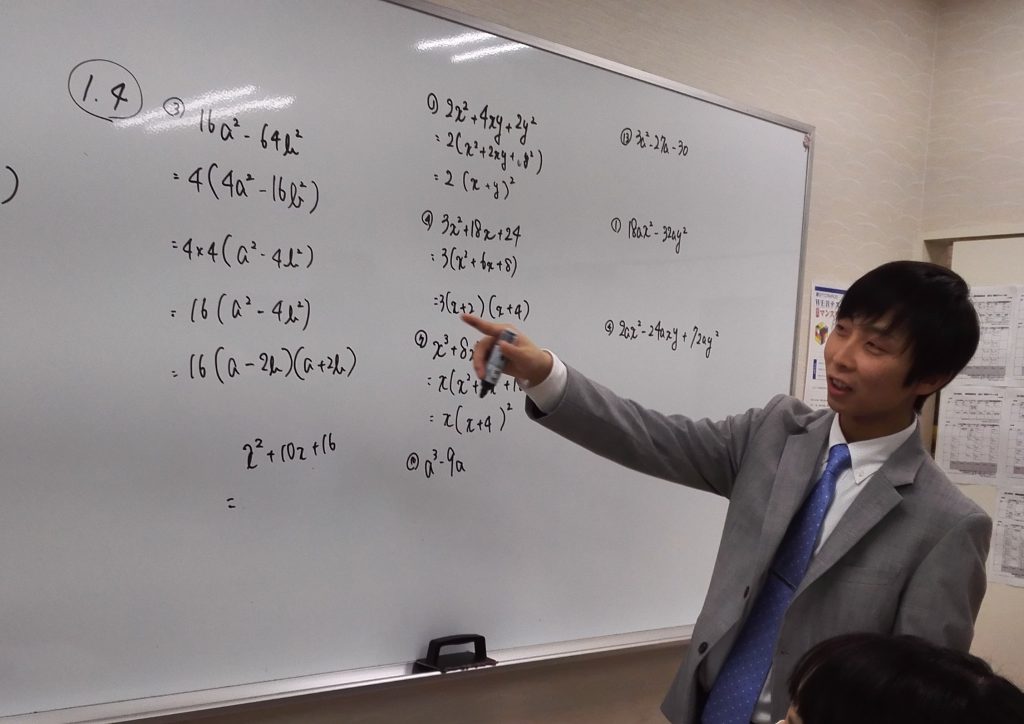 1.4
③ 16a² - 64b²
= 4(4a² - 16b²)
= 4×4(a² - 4b²)
= 16(a² - 4b²)
= 16(a - 2b)(a + 2b)
x² + 10x + 16
=
① 2x² + 4xy + 2y²
= 2(x² + 2xy + y²)
= 2(x + y)²
④ 3x² + 18x + 24
= 3(x² + 6x + 8)
= 3(x + 2)(x + 4)
x³ + 8x
= x(x² +
= x(x + 4)²
a³ - 9a
3a² - 27a - 30
① 18ax² - 32ay²
④ 2ax² - 24axy + 72ay²